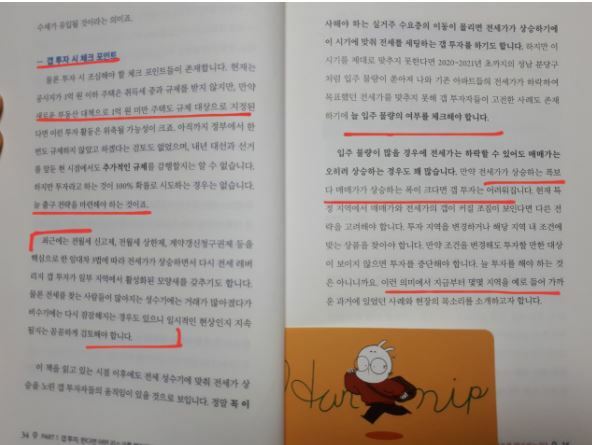 수세가 유입될 것이라는 의미죠.
— 갭 투자 시 체크 포인트
물론 투자 시 조심해야 할 체크 포인트들이 존재합니다. 현재는
공시지가 1억 원 이하 주택은 취득세 중과 규제를 받지 않지만, 만약
새로운 부동산 대책으로 1억 원 미만 주택도 규제 대상으로 지정된
다면 이런 투자 활동은 위축될 가능성이 크죠. 아직까지 정부에서 한
번도 규제하지 않았고 하겠다는 검토도 없었으며, 내년 대선과 선거
를 앞둔 현 시점에서도 추가적인 규제를 감행할지는 알 수 없습니다.
하지만 투자라고 하는 것이 100% 확률로 시도하는 경우는 없습니다.
늘 출구 전략을 마련해야 하는 것이죠.
최근에는 전월세 신고제, 전월세 상한제, 계약갱신청구권제 등을
핵심으로 한 임대차 3법에 따라 전세가가 상승하면서 다시 전세 레버
리지 갭 투자가 일부 지역에서 활성화된 모양새를 갖추기도 합니다.
물론 전세를 찾는 사람들이 많아지는 성수기에는 거래가 많아졌다가
비수기에는 다시 잠잠해지는 경우도 있으니 일시적인 현상인지 지속
될지는 꼼꼼하게 검토해야 합니다.
이 책을 읽고 있는 시점 이후에도 전세 성수기에 맞춰 전세가 상
승을 노린 갭 투자자들의 움직임이 있을 것으로 보입니다. 정말 꼭 이
34 PART 1 갭 투자 한다면 어떤
사해야 하는 실거주 수요층의 이동이 몰리면 전세가가 상승하기에
이 시기에 맞춰 전세를 세팅하는 갭 투자를 하기도 합니다. 하지만 이
시기를 제대로 맞추지 못한다면 2020~2021년 초까지의 성남 분당구
처럼 입주 물량이 쏟아져 나와 기존 아파트들의 전세가가 하락하여
목표했던 전세가를 맞추지 못해 갭 투자자들이 고전한 사례도 존재
하기에 늘 입주 물량의 여부를 체크해야 합니다.
입주 물량이 많을 경우에 전세가는 하락할 수 있어도 매매가는
오히려 상승하는 경우도 꽤 많습니다. 만약 전세가가 상승하는 폭보
다 매매가가 상승하는 폭이 크다면 갭 투자는 어려워집니다. 현재 특
정 지역에서 매매가와 전세가의 갭이 커질 조짐이 보인다면 다른 전
략을 고려해야 합니다. 투자 지역을 변경하거나 해당 지역 내 조건에
맞는 상품을 찾아야 합니다. 만약 조건을 변경해도 투자할 만한 대상
이 보이지 않으면 투자를 중단해야 합니다. 늘 투자를 해야 하는 것
은 아니니까요. 이런 의미에서 지금부터 몇몇 지역을 예로 들어 가까
운 과거에 있었던 사례와 현장의 목소리를 소개하고자 합니다.